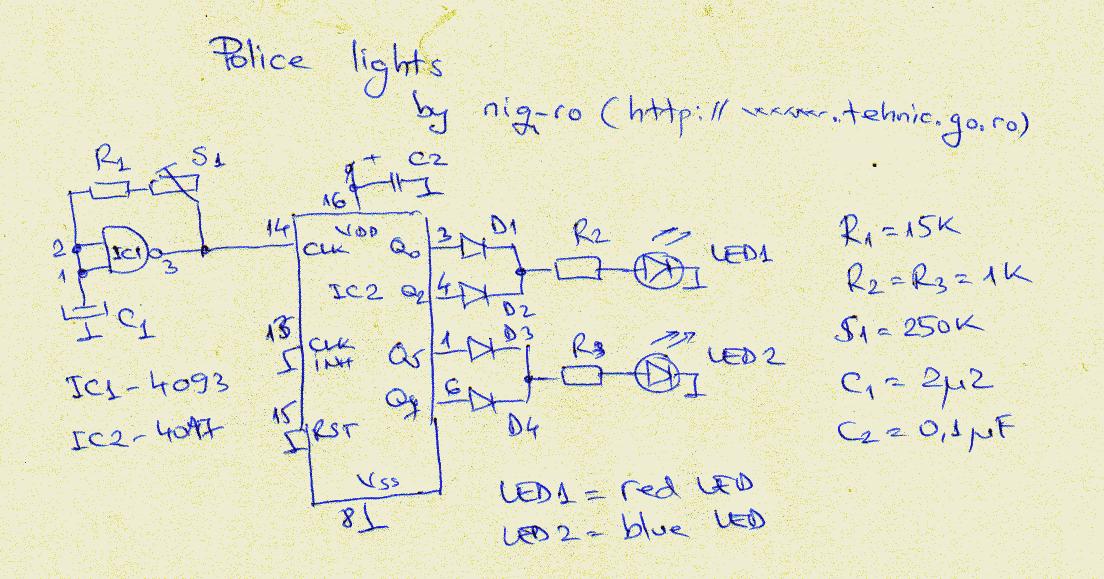 Police lights
by niq-ro (http://www.tehnic.go.ro)
R1
S1
+
C2
16
14
VDD
CLK
Q0
3
D1
R2
LED1
R1=15K
2
IC1
3
1
IC2
Q2
4
D2
R2=R3=1K
C1
13
CLK
INH
Q5
1
D3
R3
LED2
S1=250K
IC1-4093
Q7
6
D4
C1=2µ2
IC2-4017
15
RST
C2=0,1µF
VSS
8
LED1=red LED
LED2=blue LED